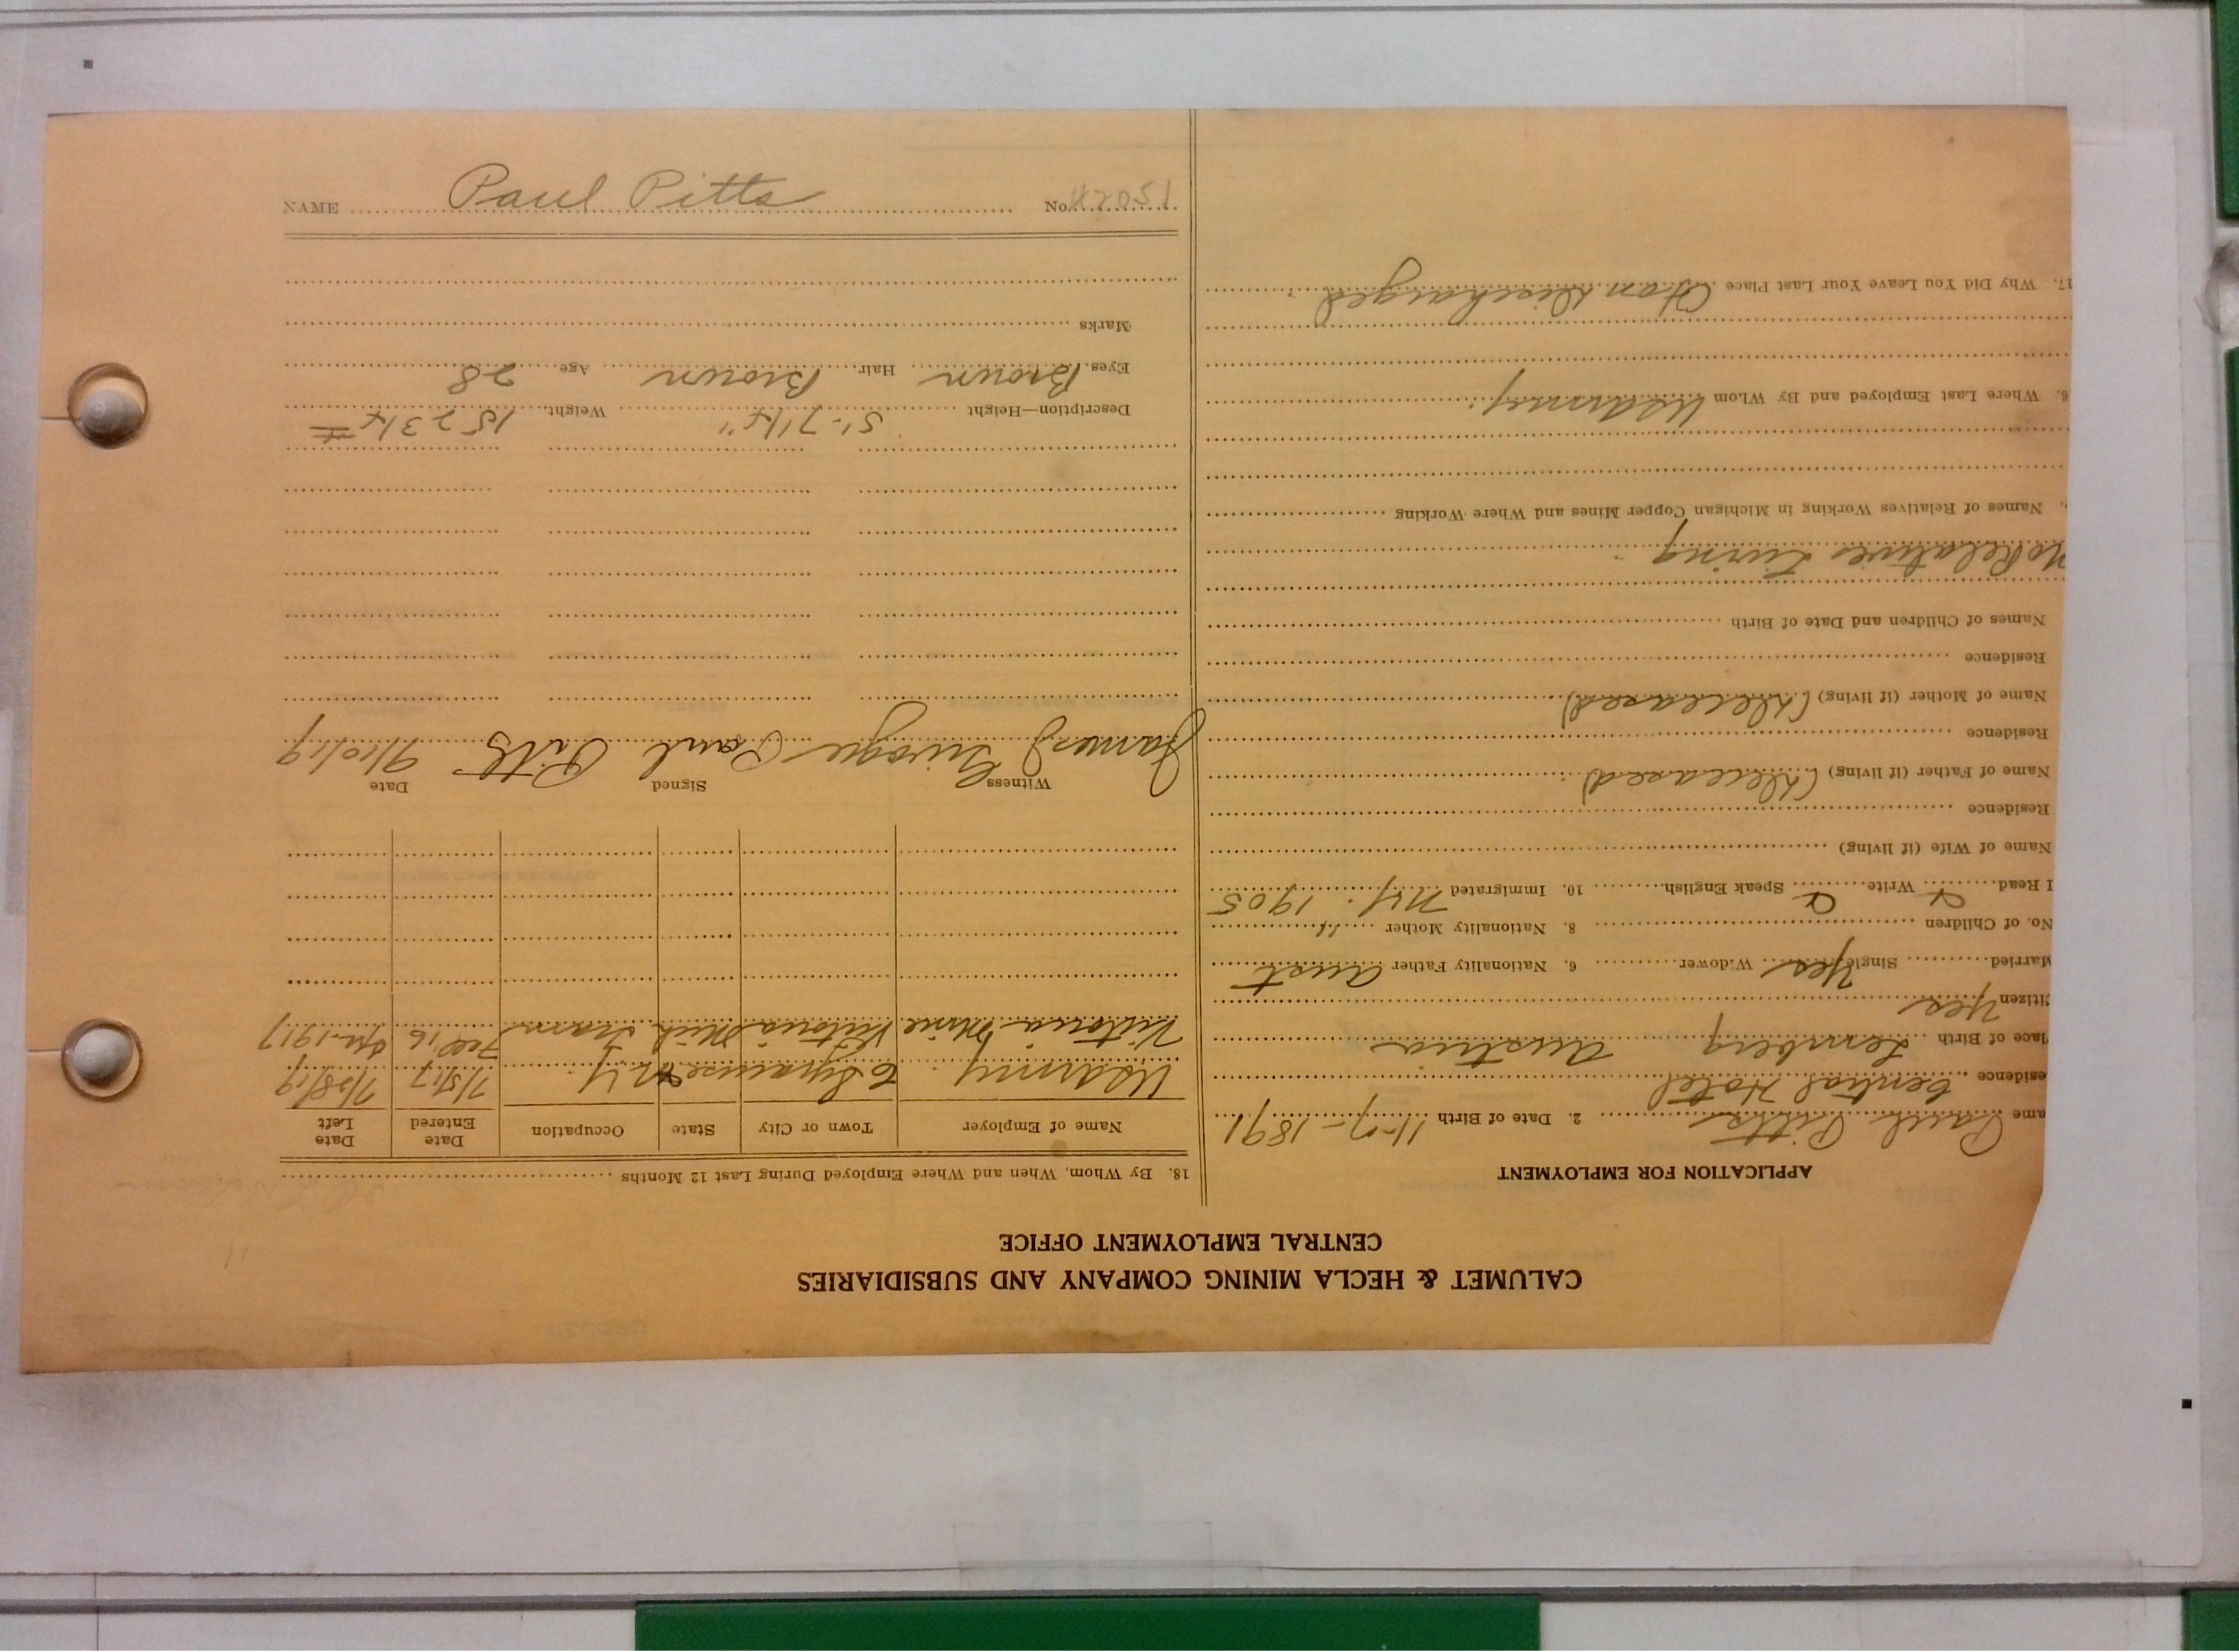 CALUMET & HECLA MINING COMPANY AND SUBSIDIARIES
CENTRAL EMPLOYMENT OFFICE
APPLICATION FOR EMPLOYMENT
ame Paul Pitts 2. Date of Birth 11-7-1891
esidence Central Hotel
lace of Birth Lemberg Austria
itizen Yes
Married Single Yes Widower 6. Nationality Father Aust
No. of Children 8. Nationality Mother "
I Read Write Speak English 10. Immigrated N.Y. 1905
Name of Wife (if living)
Residence
Name of Father (if living) (Deceased)
Residence
Name of Mother (if living) (Deceased)
Residence
Names of Children and Date of Birth
No Relatives Living
Names of Relatives Working in Michigan Copper Mines and Where Working
6. Where Last Employed and By Whom US Army
17. Why Did You Leave Your Last Place Hon Discharged
18. By Whom, When and Where Employed During Last 12 Months
Name of Employer Town or City State Occupation Date Entered Date Left
US Army Syracuse N.Y. 7/5/17 7/28/19
Victoria Mine Victoria Mich Tram Feb 16 1917
Witness Signed Date
James Paul Pitts 9/10/19
Description—Height 5'-7 1/4" Weight 152 3/4 #
Eyes Brown Hair Brown Age 28
Marks
NAME Paul Pitts No. 42051